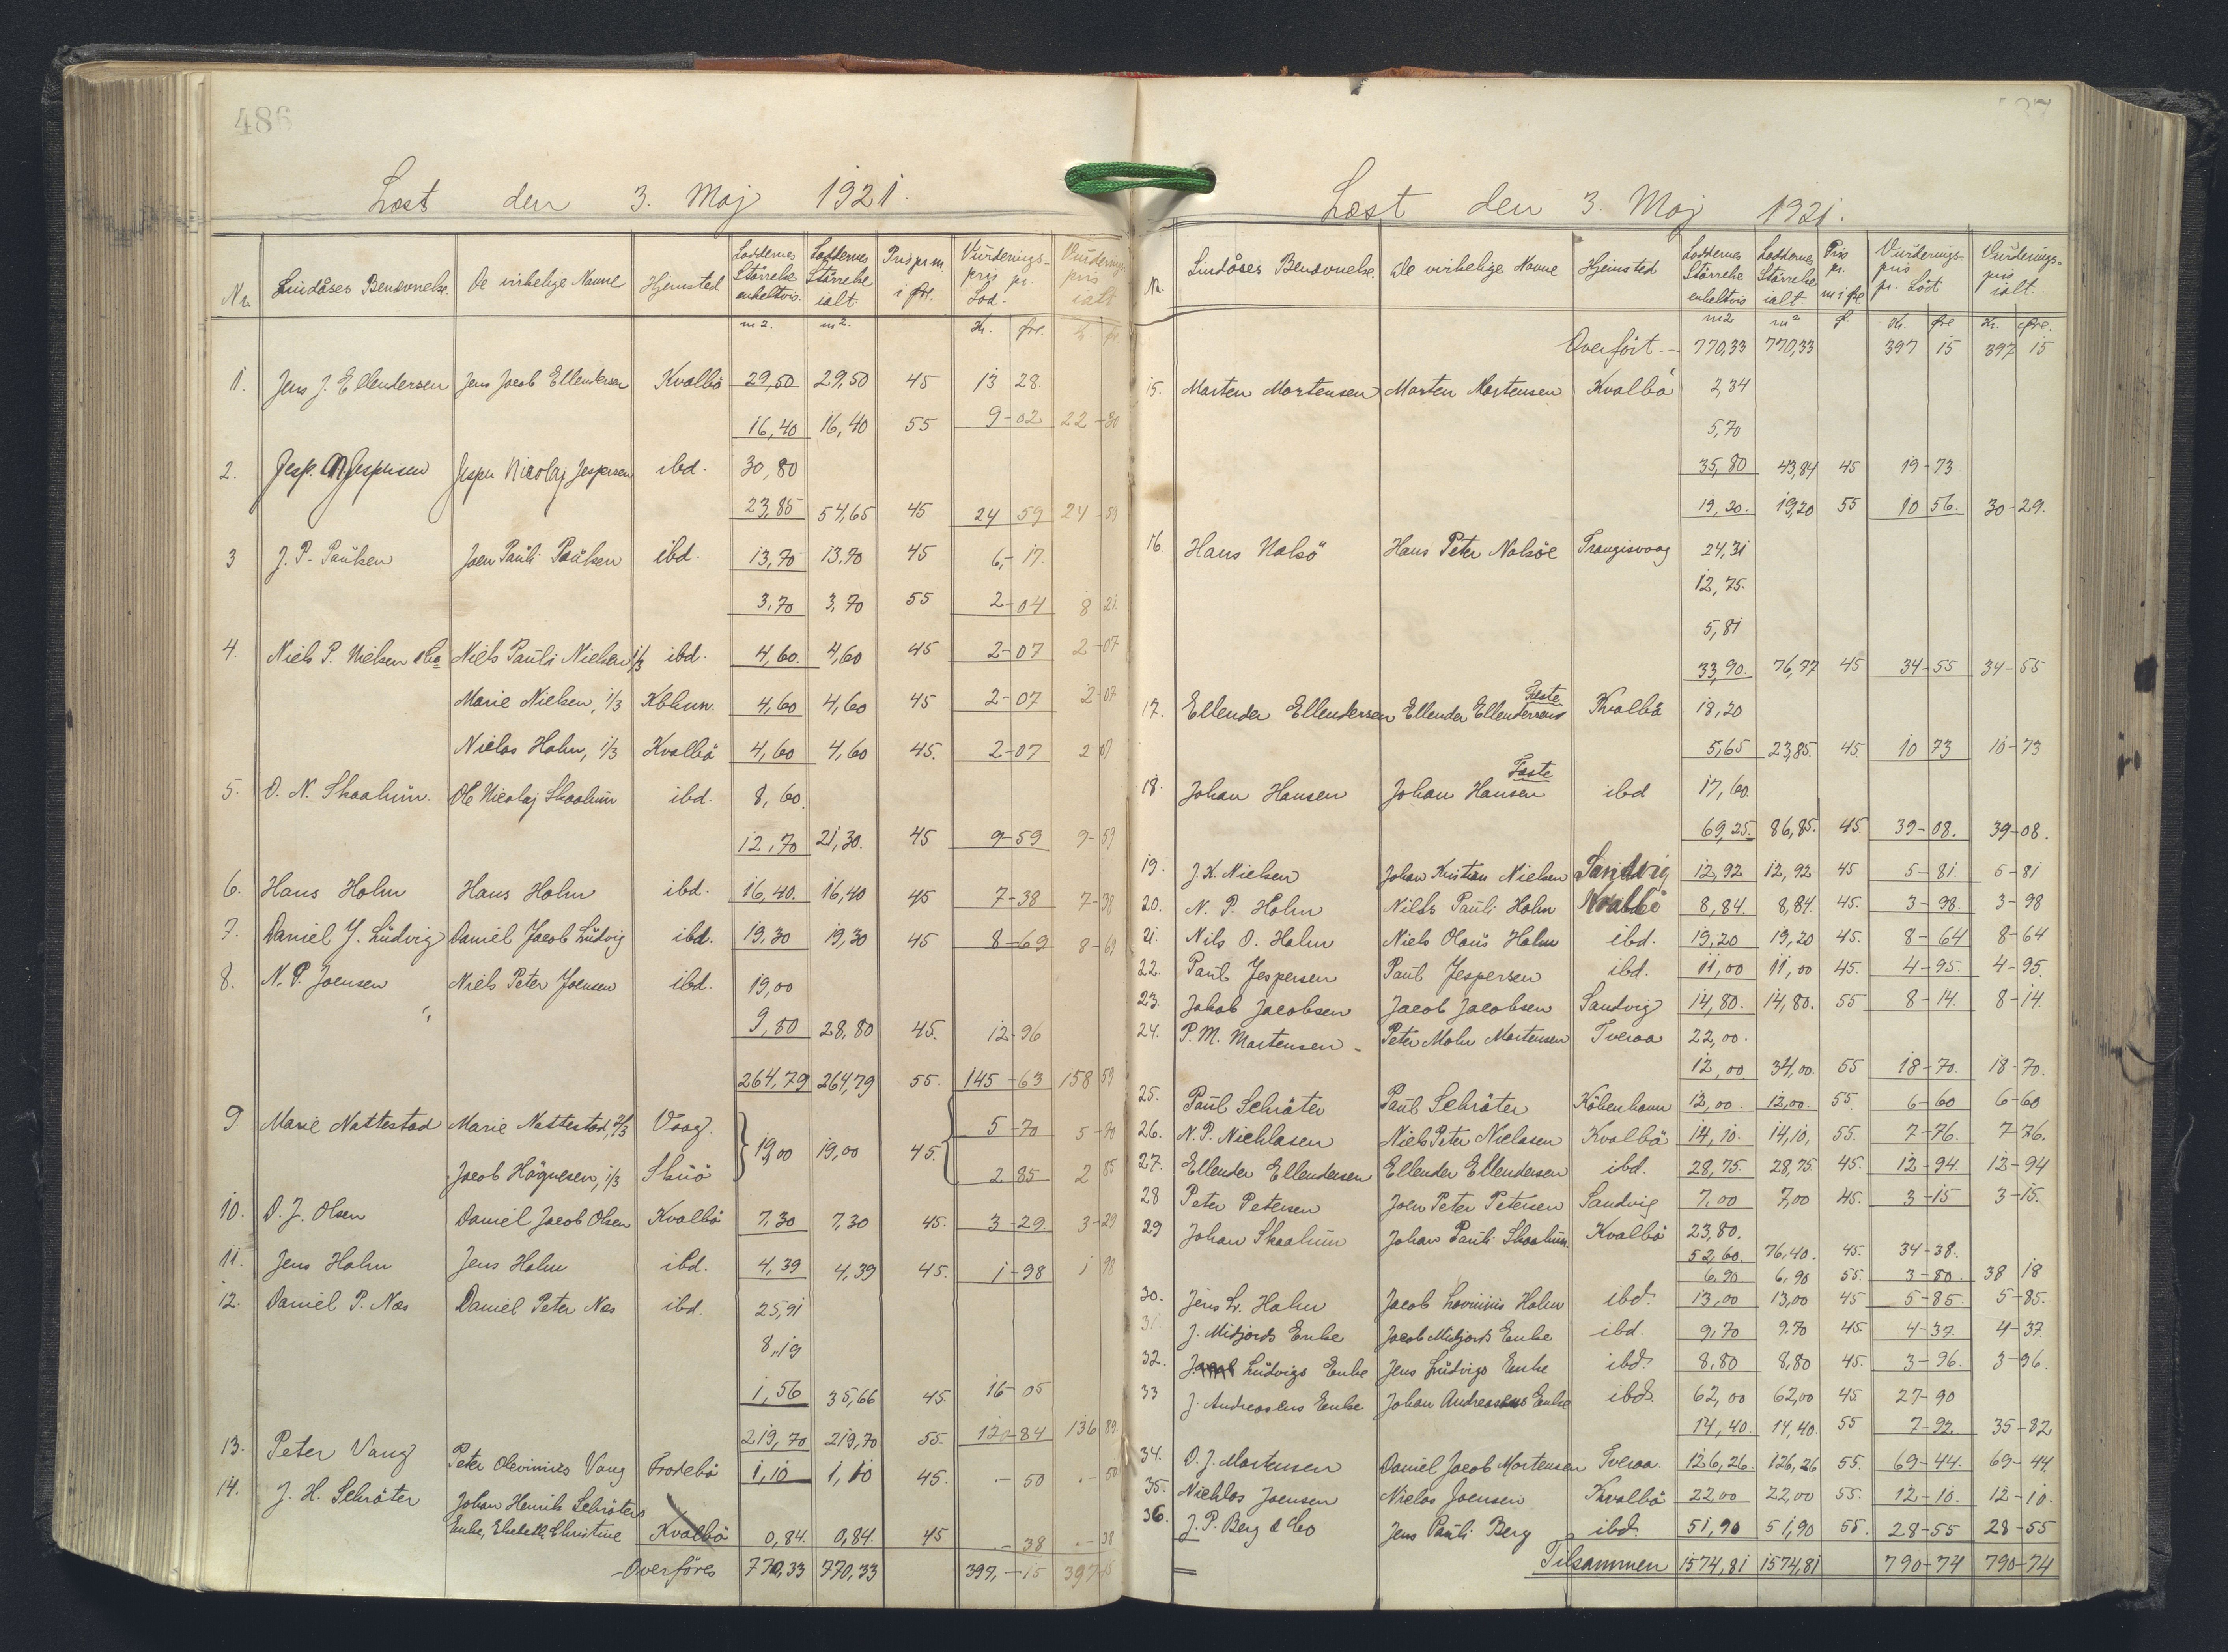 486
Læst den 3. Maj 1921.
Nr. Lindåses Benævnelse. De virkelige Navne Hjemsted Loddernes Størrelse enkeltvis. Loddernes Størrelse ialt. Pris pr. m. i Øre. Vurderings-pris pr. Lod. Vurderings-pris ialt
m2. m2. Kr. Øre. Kr. Ør.
1. Jens J. Ellendersen Jens Jacob Ellendersen Kvalbö 29,50 29,50 45 13 28.
16,40 16,40 55 9-02 22-30
2. Jesp. N Jespersen Jesper Nicolaj Jespersen ibd. 30,80
23,85 54,65 45 24 59 24-59
3 J. P. Paulsen Joen Pauli Paulsen ibd. 13,70 13,70 45 6,-17.
3,70 3,70 55 2-04 8 21.
4. Niels P. Nielsen & Co Niels Pauli Nielsen 1/3 ibd. 4,60. 4,60 45 2-07 2-07
Marie Nielsen, 1/3 Kbhvn. 4,60 4,60 45 2-07 2-07
Niclas Holm, 1/3 Kvalbö 4,60 4,60 45. 2-07 2 07
5. O. N. Skaalum. Ole Nicolaj Skaalum ibd. 8,60.
12,70 21,30. 45 9-59 9-59
6. Hans Holm Hans Holm ibd. 16,40. 16,40 45 7-38 7-38
7. Daniel J. Ludvig Daniel Jacob Ludvig ibd. 19,30 19,30 45 8-69 8-69
8. N. P. Joensen Niels Peter Joensen ibd. 19,00
9,80 28,80 45. 12-96
264,79 264,79 55. 145-63 158 59
9. Marie Nattestad Marie Nattestad, 2/3 Vaag. 19,00 19,00 45. 5-70 5-70
Jacob Høgnesen, 1/3 Skuö 2 85 2 85
10. D. J. Olsen Daniel Jacob Olsen Kvalbö 7,30 7,30 45. 3-29 3-29
11. Jens Holm Jens Holm ibd. 4,39 4,39 45. 1-98 1 98
12. Daniel P. Næs Daniel Peter Næs ibd. 25,91
8,19
1,56 35,66 45. 16-05
219,70 219,70 55. 120-84 136 89.
13. Peter Vang Peter Olevinius Vang Frodebö 1,10 1,10 45. .-50 .-50
14. J. H. Schröter Johan Henrik Schröters
Enke, Elsebeth Christine Kvalbö 0,84. 0,84. 45 .-38 .-38
Overføres 770,33 770,33 397,-15 397-15
Læst den 3. Maj 1921.
Nr. Lindåses Benævnelse. De virkelige Navne Hjemsted Loddernes Størrelse enkeltvis Loddernes Størrelse ialt. Pris pr. m i Øre Vurderings-pris pr. Lod Vurderings-pris ialt.
m2 m2 Ø. Kr. Øre Kr. Øre.
Overført- 770,33 770,33 397 15 397 15
15. Morten Mortensen Morten Mortensen Kvalbö 2,34
5,70
35,80 43,84 45 19-73
19,20. 19,20 55 10 56. 30-29.
16. Hans Nolsö Hans Peter Nolsöe Trangisvaag 24,31
12,75.
5,81
33,90. 76,77 45 34-55 34-55
17. Ellender Ellendersen Ellender Ellendersens Fæste Kvalbö 18,20
5,65 23,85. 45. 10 73 10-73
18. Johan Hansen Johan Hansen Fæste ibd 17,60.
69,25. 86,85. 45. 39-08. 39-08.
19. J. K. Nielsen Johan Kristian Nielsen Sandvig 12,92 12,92 45 5-81. 5-81
20. N. P. Holm Niels Pauli Holm Kvalbö 8,84. 8,84. 45. 3-98. 3-98
21. Nils O. Holm Niels Olaus Holm ibd. 19,20 19,20 45. 8-64 8-64
22. Paul Jespersen Paul Jespersen ibd. 11,00 11,00 45. 4-95. 4-95.
23. Jakob Jacobsen Jacob Jacobsen Sandvig 14,80. 14,80. 55 8-14. 8-14.
24. P. M. Mortensen - Peter Mohr Mortensen Tveraa 22,00.
12,00. 34,00. 55 18-70. 18-70.
25. Paul Schröter Paul Schröter Köbenhavn 12,00. 12,00. 55. 6-60 6-60
26. N. P. Nichlasen Niels Peter Niclasen Kvalbö 14,10. 14,10, 55. 7-76. 7-76.
27. Ellender Ellendersen Ellender Ellendersen ibd. 28,75. 28,75. 45. 12-94. 12-94
28 Peter Petersen Joen Peter Petersen Sandvig 7,00 7,00 45. 3-15 3-15.
29 Johan Skaalum Johan Pauli Skaalum. Kvalbö 23,80.
52,60. 76,40. 45. 34-38.
6,90 6,90 55. 3-80. 38 18
30. Jens L. Holm Jacob Lovinius Holm ibd. 13,00 13,00 45 5-85. 5-85.
31. J. Midjords Enke Jacob Midjords Enke ibd. 9,70 9,70 45. 4-37. 4-37.
32. J. Ludvigs Enke Jens Ludvigs Enke ibd. 8,80 8,80 45. 3-96. 3-96.
33 J. Andreasens Enke Johan Andreasens Enke ibd. 62,00 62,00 45. 27-90
14,40. 14,40. 55 7-92. 35-82
34. D. J. Mortensen Daniel Jacob Mortensen Tveraa. 126,26. 126,26 55. 69-44. 69-44.
35. Nichlas Joensen Niclas Joensen Kvalbö 22,00 22,00 55. 12-10. 12-10.
36. J. P. Berg & Co Jens Pauli Berg ibd. 51,90 51,90 55. 28-55 28-55
Tilsammen 1574,81 1574,81 790-74 790-74